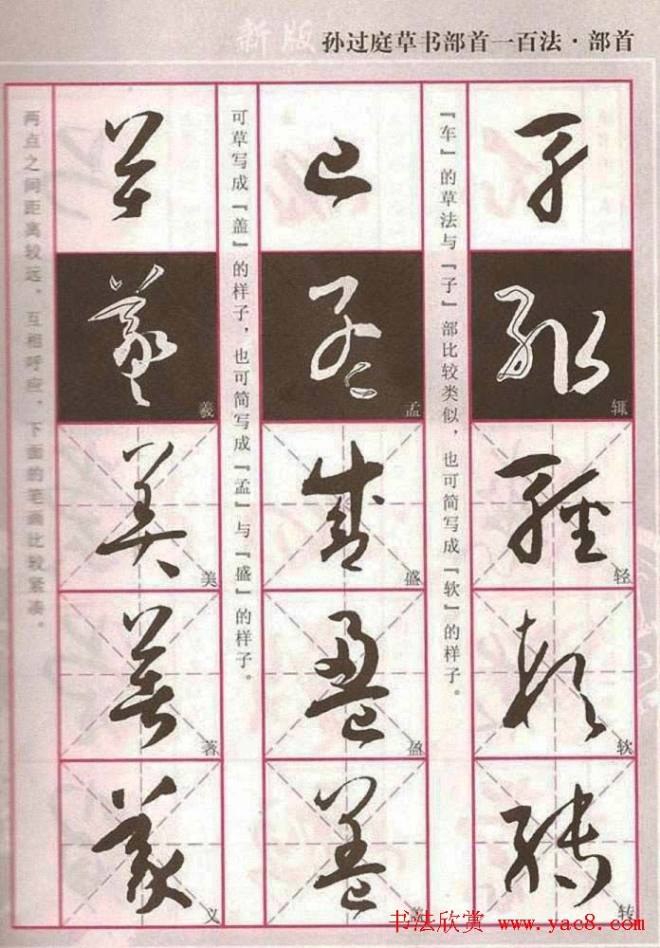 新版 孙过庭草书部首一百法·部首
辄
轻
软
转
『车』的草法与『子』部比较类似，也可简写成『软』的样子。
孟
盛
盈
可草写成『盖』的样子，也可简写成『孟』与『盛』的样子。
羲
美
义
两点之间距离较远，互相呼应，下面的笔画比较紧凑。
书法欣赏 www.yac8.com